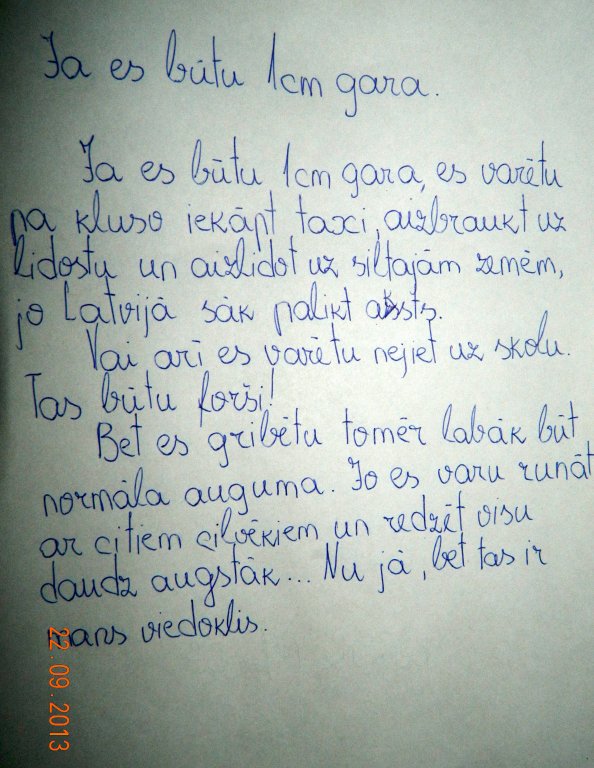 Ja es būtu 1cm gara.
Ja es būtu 1cm gara, es varētu
pa kluso iekāpt taxi, aizbraukt uz
lidostu un aizlidot uz siltajām zemēm,
jo Latvijā sāk palikt auksts.
Vai arī es varētu nejiet uz skolu.
Tas būtu forši!
Bet es gribētu tomēr labāk būt
normāla auguma. Jo es varu runāt
ar citiem cilvēkiem un redzēt visu
daudz augstāk... Nu jā, bet tas ir
mans viedoklis.
22.09.2013